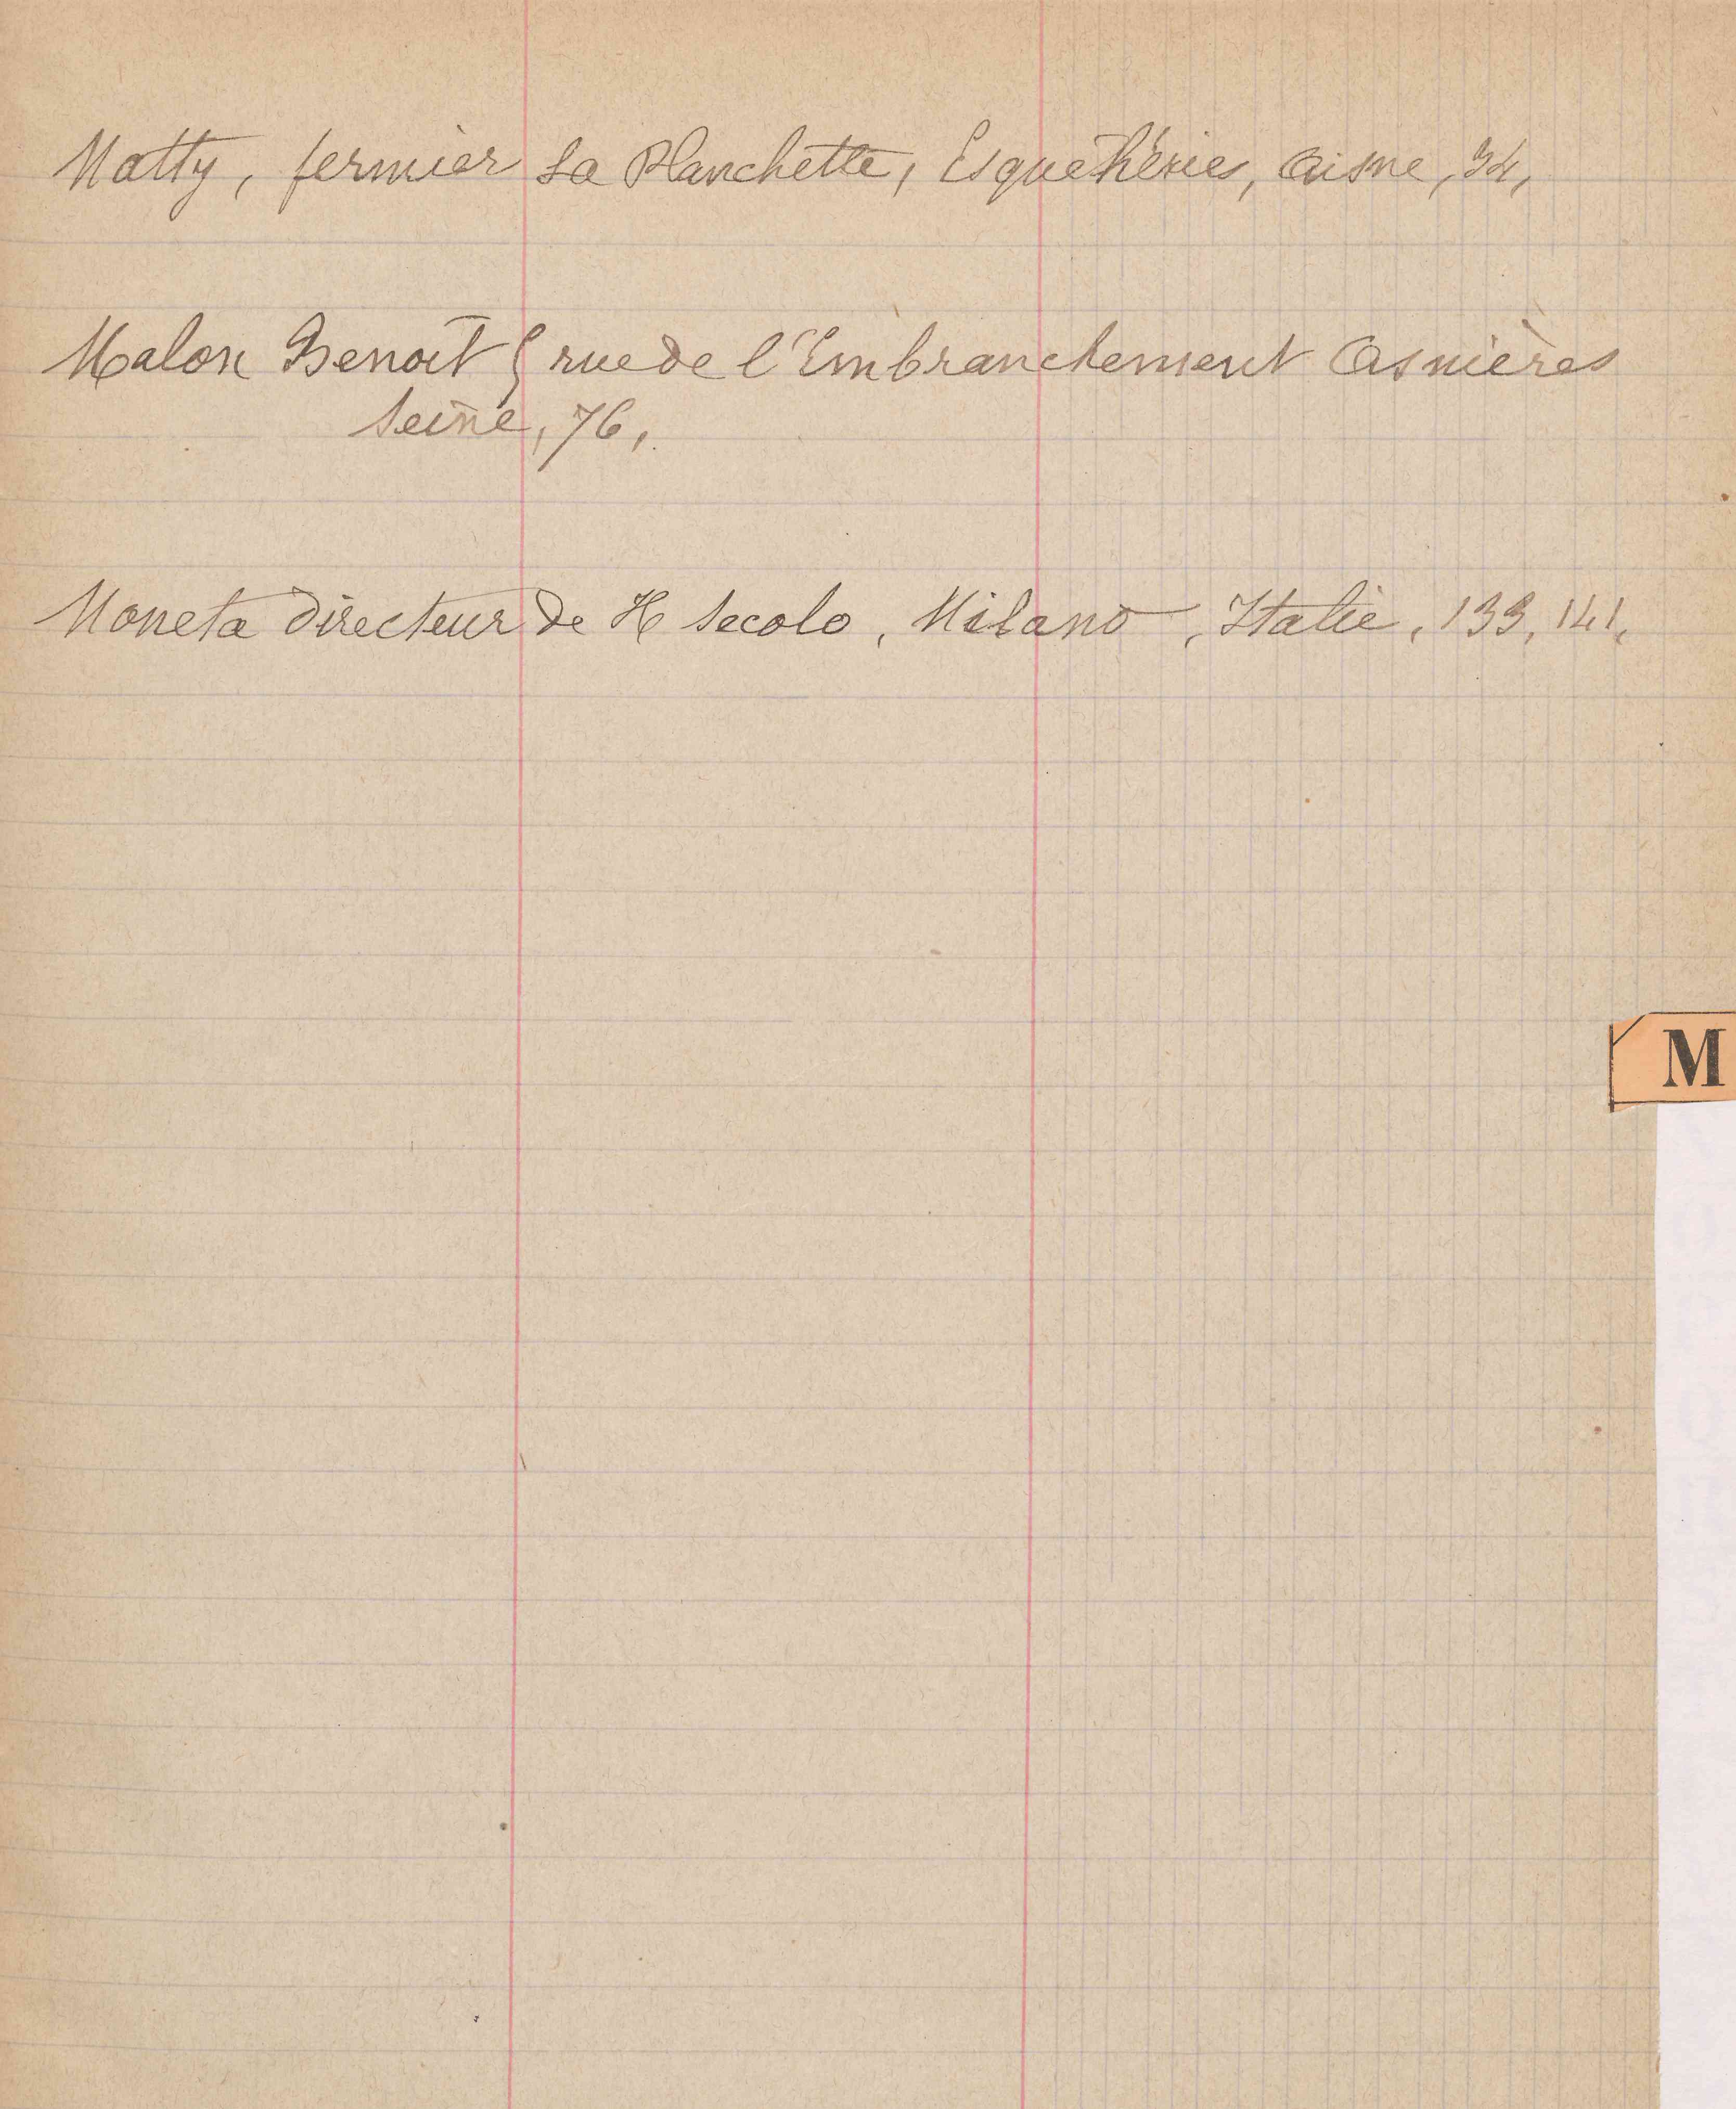 Matty, fermier La Planchette, Esquéhéries, Aisne, 34,
Malon Benoît 9 rue de l'Embranchement Asnières
Seine, 76,
Moneta directeur de Il Secolo, Milano, Italie, 139, 141,
M